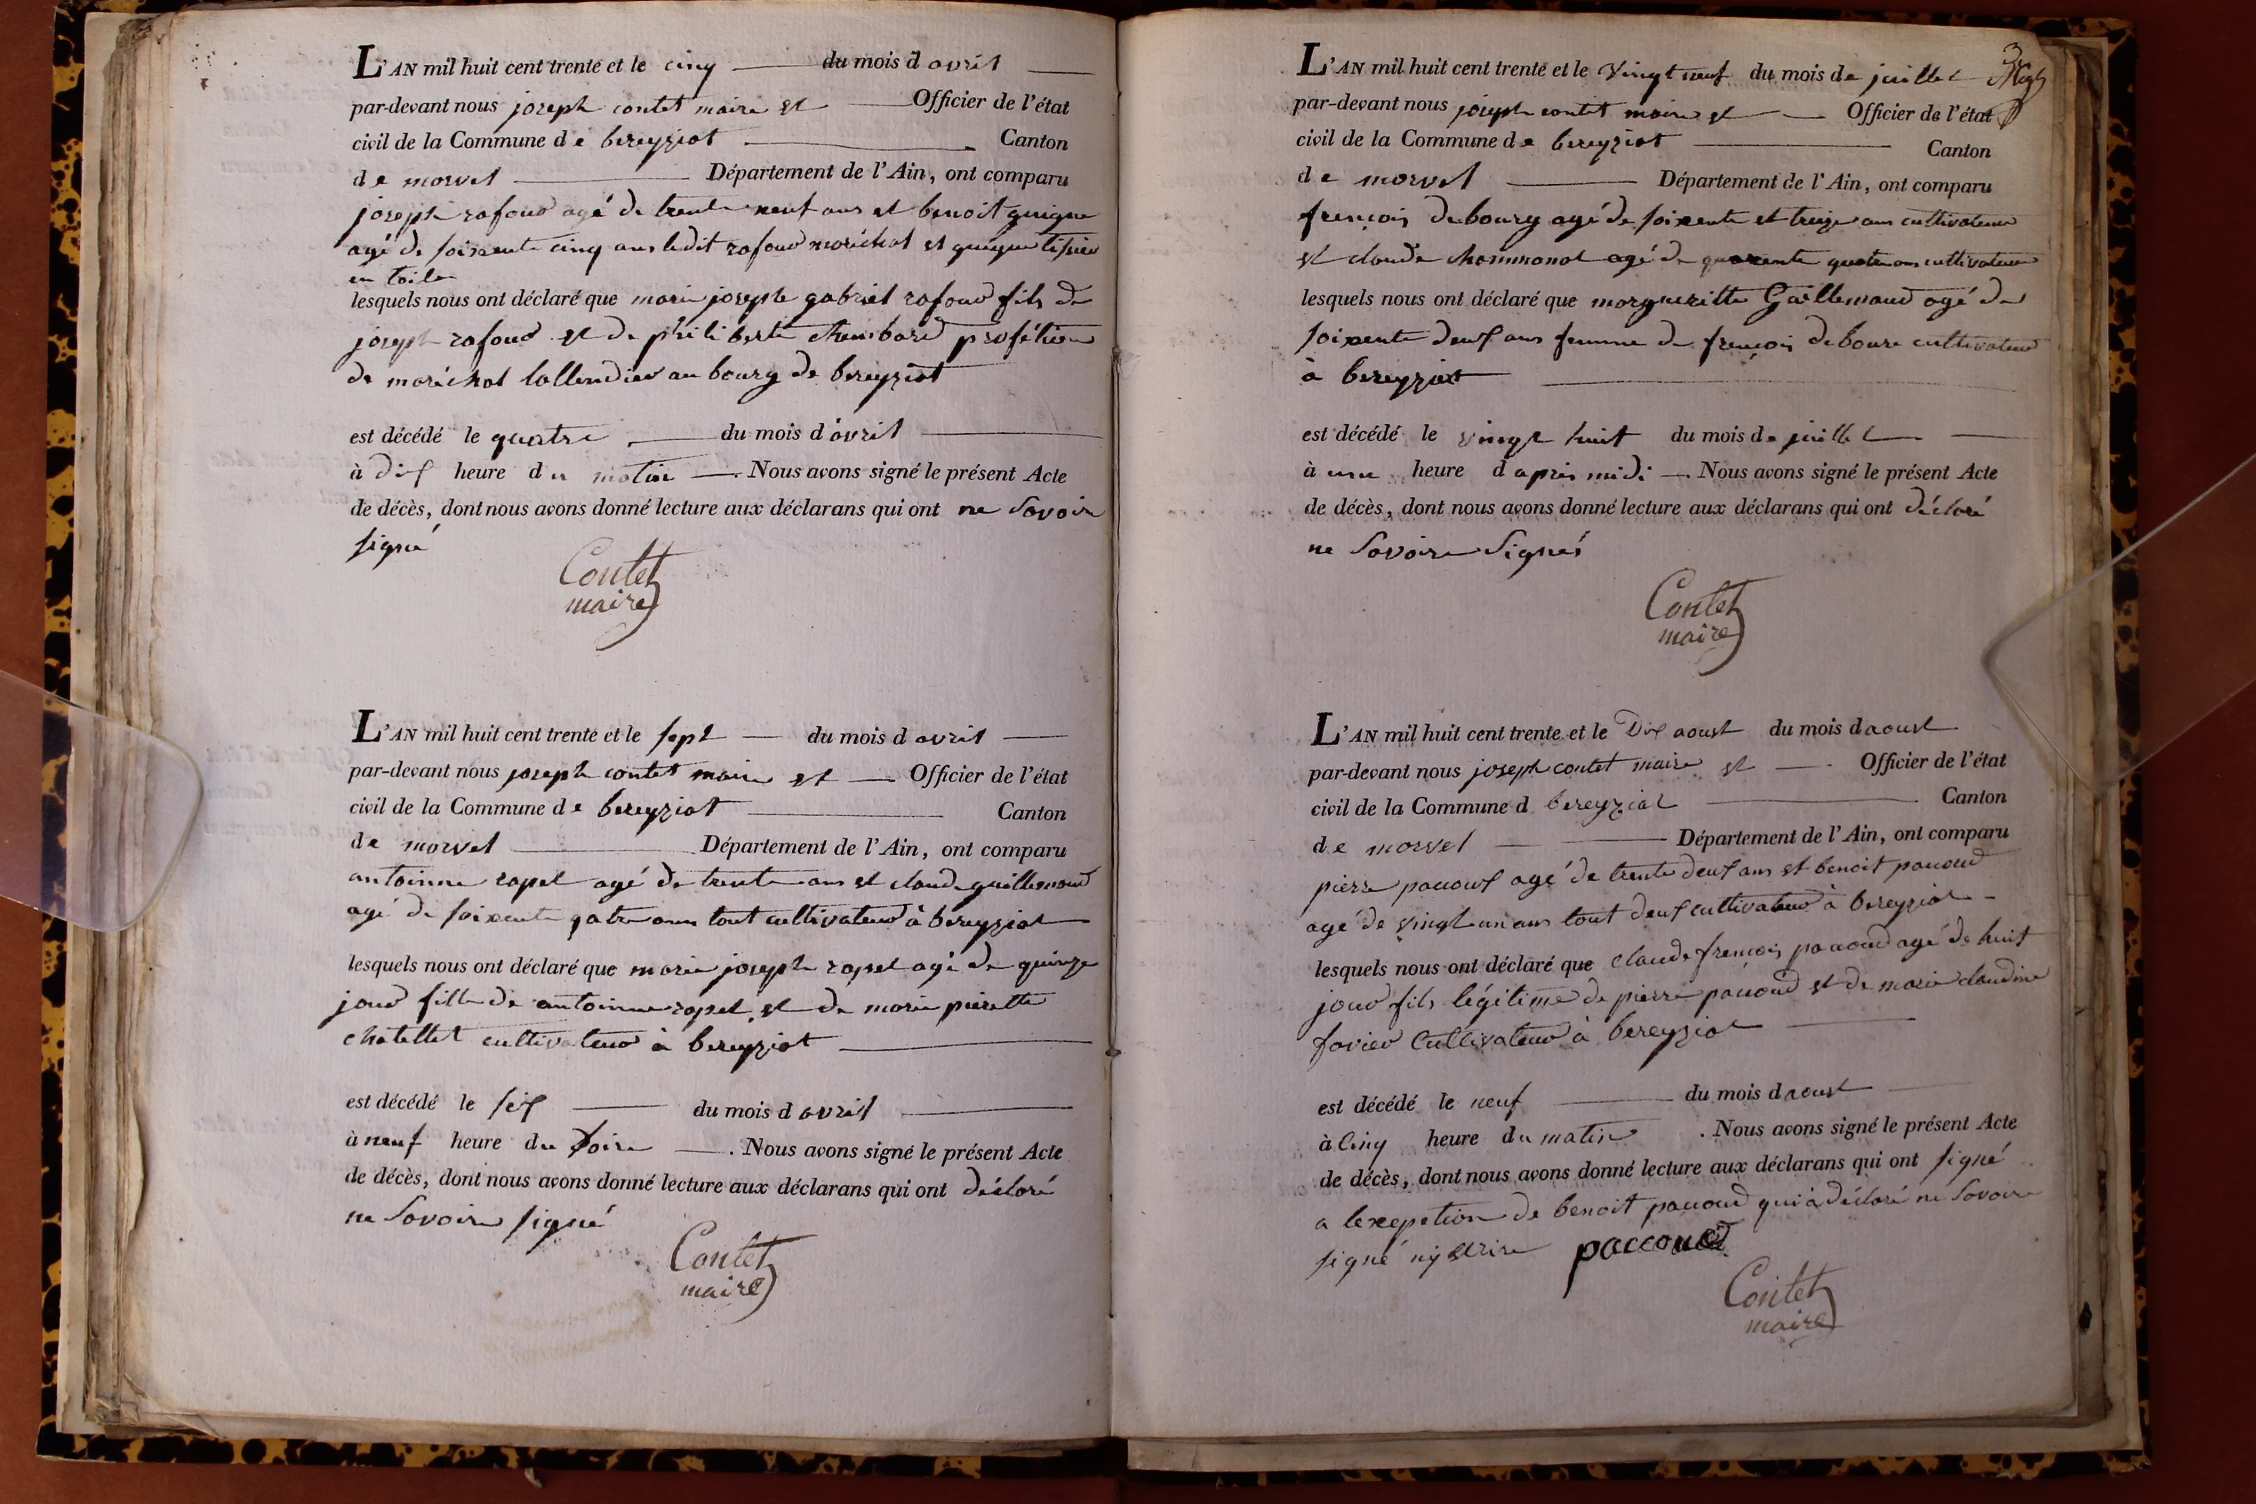 L'AN mil huit cent trente et le cinq du mois d avril
par-devant nous joseph contet maire et Officier de l'état
civil de la Commune de bereyziat Canton
de morvel Département de l'Ain, ont comparu
joseph rafoud agé de trente neuf ans et benoit guigue
agé de soixente cinq ans ledit rafoud maréchal et guigue tisieu
en toile
lesquels nous ont déclaré que marie joseph gabriel rafoud fils de
joseph rafoud et de philiberte chambard profétion
de maréchal au bourg de bereyziat
est décédé le quatre du mois d avril
à dix heure du matin . Nous avons signé le présent Acte
de décès, dont nous avons donné lecture aux déclarans qui ont ne savoir
signé
Contet
maire
L'AN mil huit cent trente et le sept du mois d avril
par-devant nous joseph contet maire et Officier de l'état
civil de la Commune de bereyziat Canton
de morvel Département de l'Ain, ont comparu
antoinne ropel agé de trente ans et claude guillemaud
agé de soixente qatre ans tout cultivateur à bereyziat
lesquels nous ont déclaré que marie joseph ropel agé de quinze
jour fille de antoinne ropel et de marie pierette
chatellet cultivateur à bereyziat
est décédé le six du mois d avril
à neuf heure du soire . Nous avons signé le présent Acte
de décès, dont nous avons donné lecture aux déclarans qui ont décloré
ne savoir signé
Contet
maire
3
L'AN mil huit cent trente et le vingt neuf du mois de juillet
par-devant nous joseph contet maire et Officier de l'état
civil de la Commune de bereyziat Canton
de morvel Département de l'Ain, ont comparu
frençois debourg agé de soixente et treize ans cultivateur
et claude chammonal agé de quarente quatre ans cultivateur
lesquels nous ont déclaré que morgueritte Gaillemaud agé de
soixente deuf ans femme de frençois debourc cultivateur
à bereyziat
est décédé le vingt huit du mois de juillet
à une heure d après midi . Nous avons signé le présent Acte
de décès, dont nous avons donné lecture aux déclarans qui ont décloré
ne savoire signés
Contet
maire
L'AN mil huit cent trente et le Dix aoust du mois d aoust
par-devant nous joseph contet maire et Officier de l'état
civil de la Commune d bereyziat Canton
de morvel Département de l'Ain, ont comparu
pierre pacoux agé de trente deux ans et benoit pacoud
agé de vingt un ans tout deux cultivateur à bereyziat
lesquels nous ont déclaré que claude frençois pacoud agé de huit
jour fils légitime de pierre pacoud et de marie claudine
favier Cultivateur à bereyziat
est décédé le neuf du mois d aoust
à Cinq heure du matin . Nous avons signé le présent Acte
de décès, dont nous avons donné lecture aux déclarans qui ont signé
a lexepetion de benoit pacoud qui à décloré ne savoir
signé ny ecrire paccoud
Contet
maire